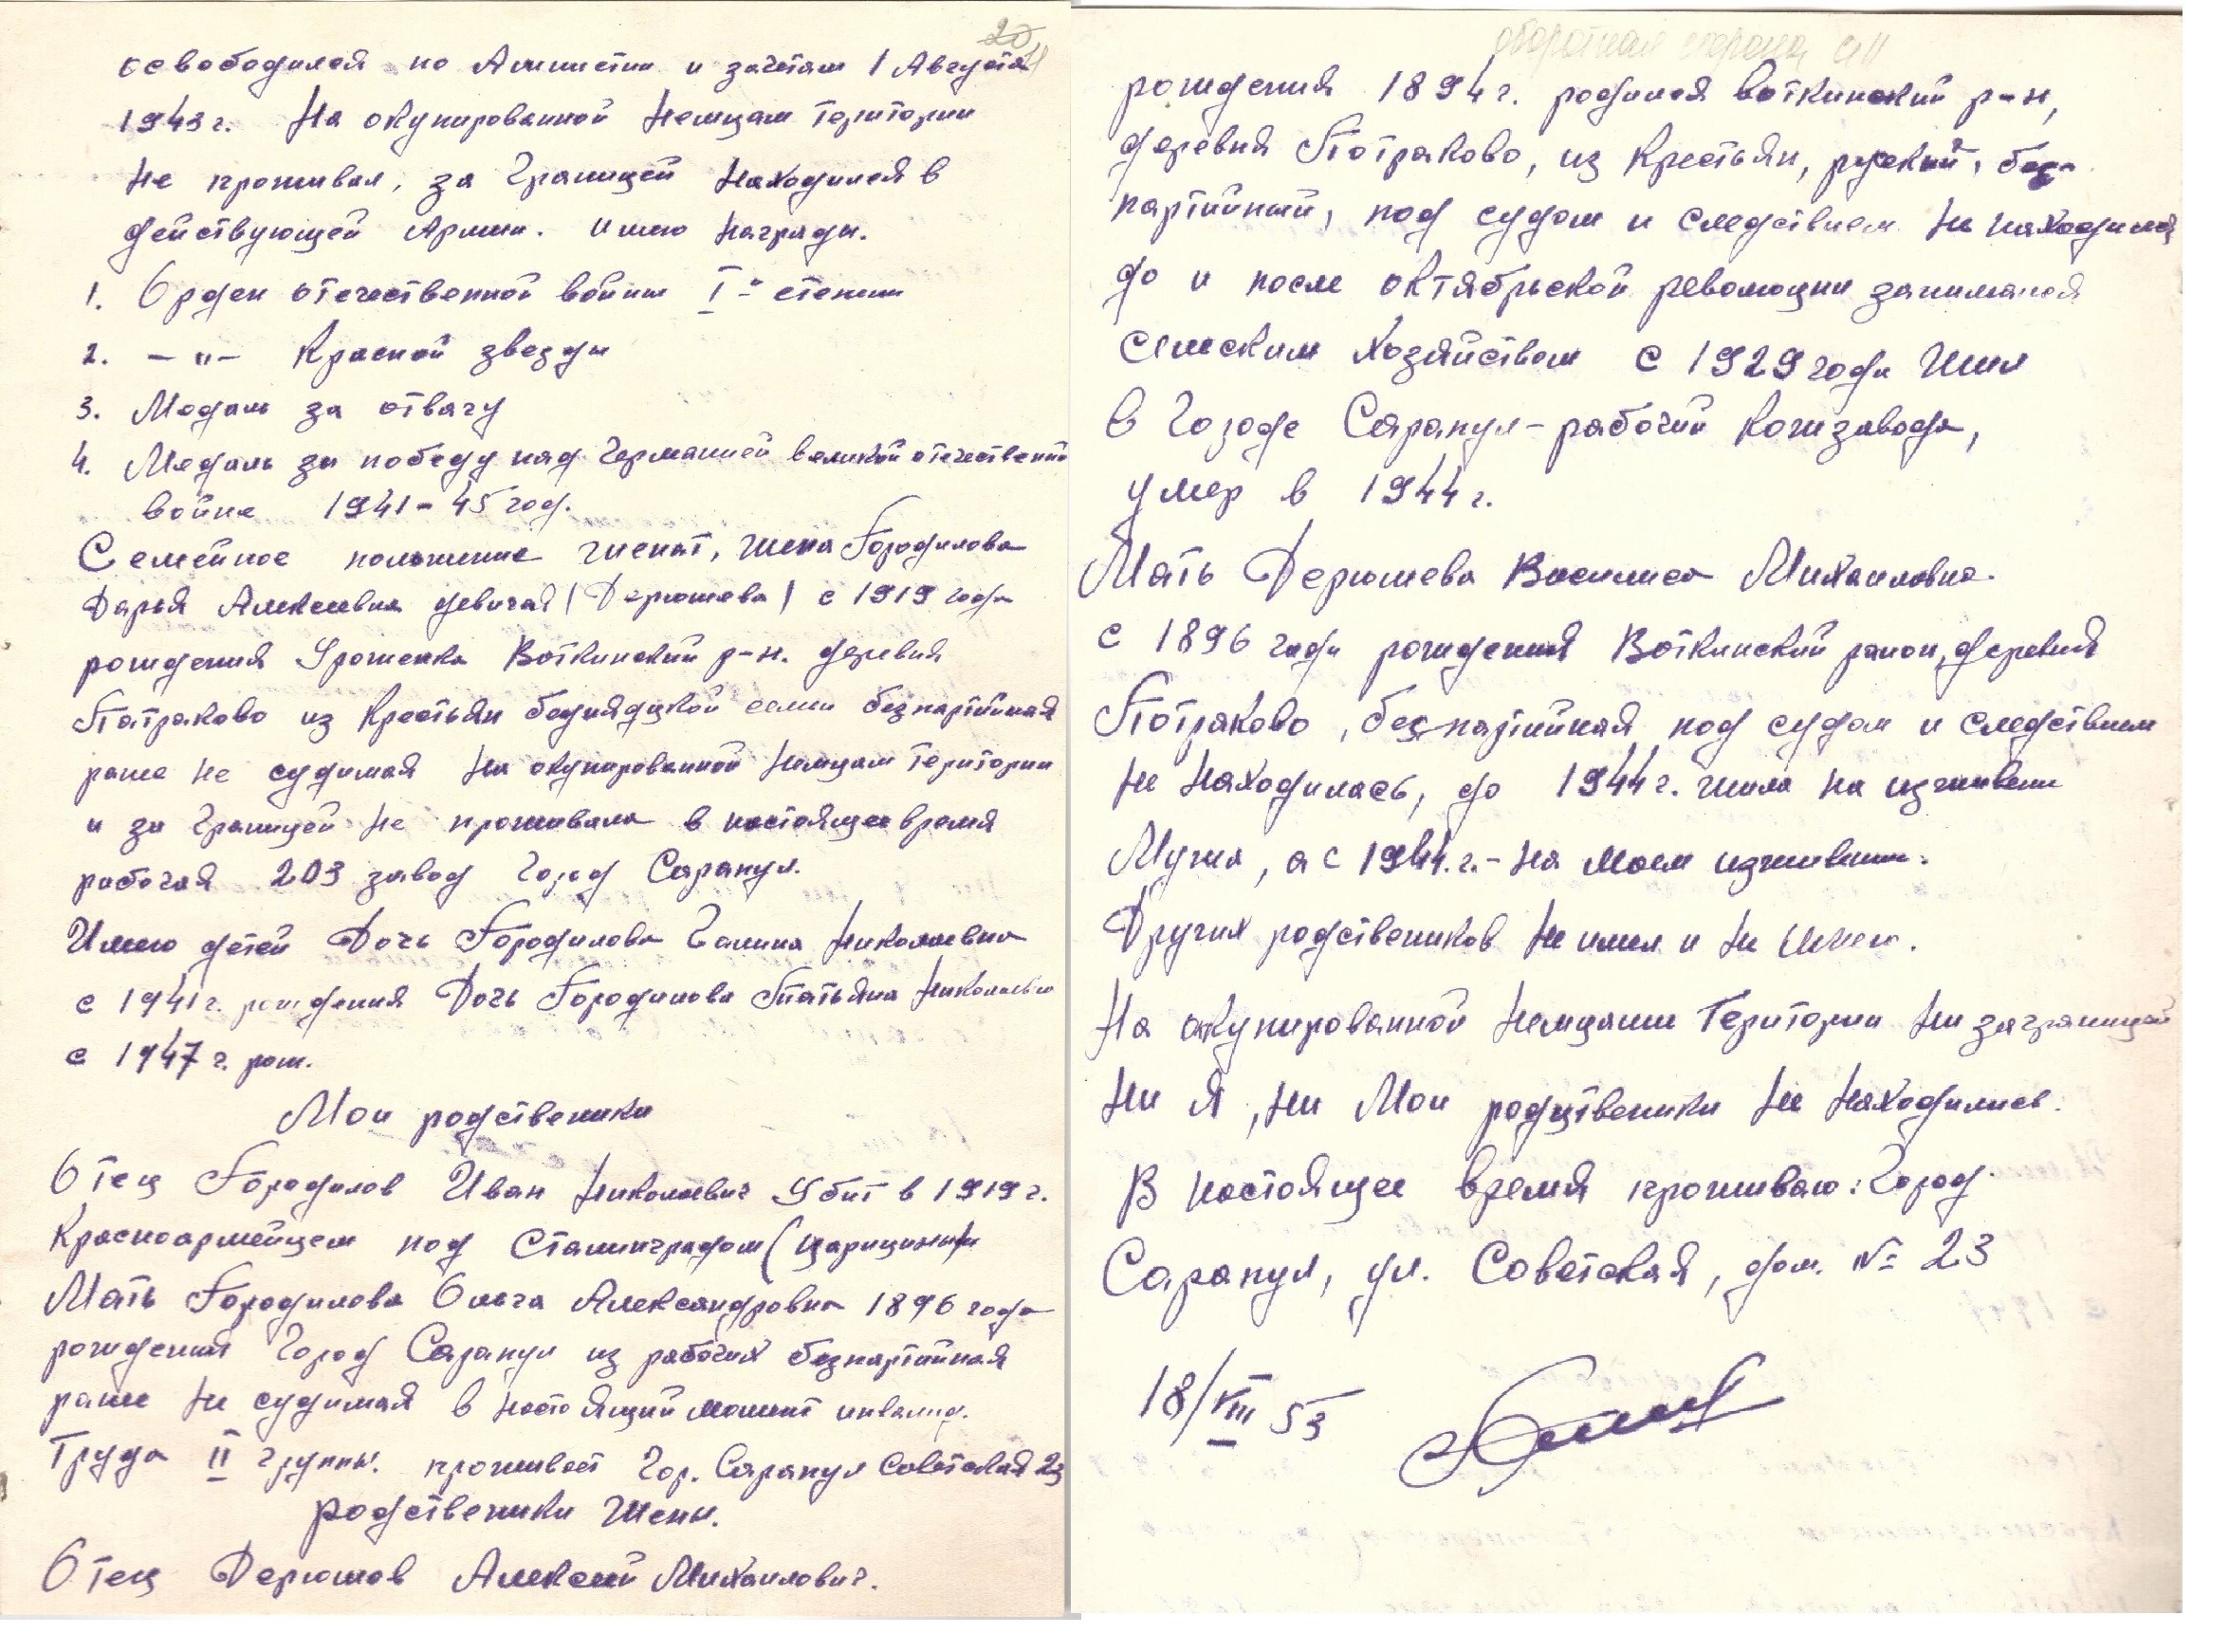 20
освободился по Амнистии и зачетам 1 Августа
1943 г. На окупированной Немцам Територии
не проживал, за Границей находился в
действующей Армии. Имею награды.
1. Орден отечественной войны I-й степени
2. — „ — Красной звезды
3. Модаль за отвагу
4. Медаль за победу над Германией великой отечественной
войне 1941 - 45 год.
Семейное положение женат, жена Городилова
Дарья Алексеевна девичая (Дерюшева) с 1919 года
рождения Уроженка Воткинский р-н. деревня
Потраково из Крестьян бедняцкой семьи безпартийная
ранее не судимая на окупированной Немцам Територии
и за Границей не проживала в настоящее время
рабочая 203 завод Город Сарапул.
Имею детей Дочь Городилова Галина Николаевна
с 1941 г. рождения Дочь Городилова Татьяна Николаевна
с 1947 г. рож.
Мои родственики
Отец Городилов Иван Николаевич Убит в 1919 г.
Красноармейцем под Сталинградом (Царицыным)
Мать Городилова Ольга Александровна 1896 года
рождения Город Сарапул из рабочих безпартийная
ранее не судимая в настоящий момент инвалид.
Труда II группы. проживает Гор. Сарапул Советская 23
родственики Жены.
Отец Дерюшов Алексей Михаилович.
оборотная сторона
рождения 1894 г. родился Воткинский р-н,
деревня Потраково, из Крестьян, руский, без-
партийный, под судом и следствием не находился
до и после октябрьской революции занимался
сельским хозяйством с 1929 года Жил
в Городе Сарапул - рабочий Кожзавода,
умер в 1944 г.
Мать Дерюшева Василиса Михаиловна.
с 1896 года рождения Воткинский район, деревня
Потраково, безпартийная, под судом и следствием
не находилась, до 1944 г. жила на иживении
Мужа, а с 1944. г. - на моем иживении.
Других родствеников не имел и не имею.
На окупированной Немцами Територии ни заграницей
ни я, ни Мои родственики не находились.
В настоящее время проживаю: Город.
Сарапул, ул. Советская, дом. № 23
18/VIII 53